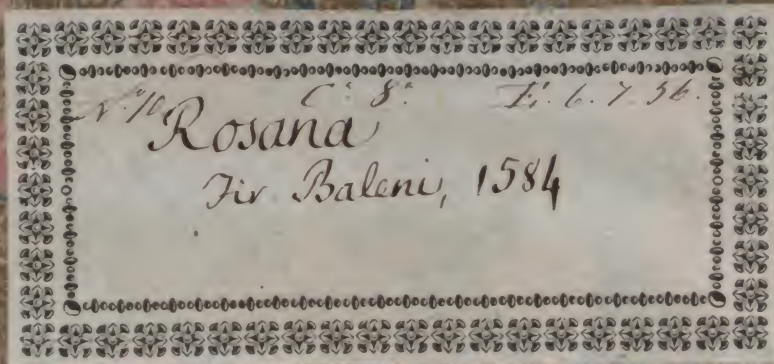 N. 10. C. 8. E. 6. 7. 56.
Rosana
Fir. Baleni, 1584